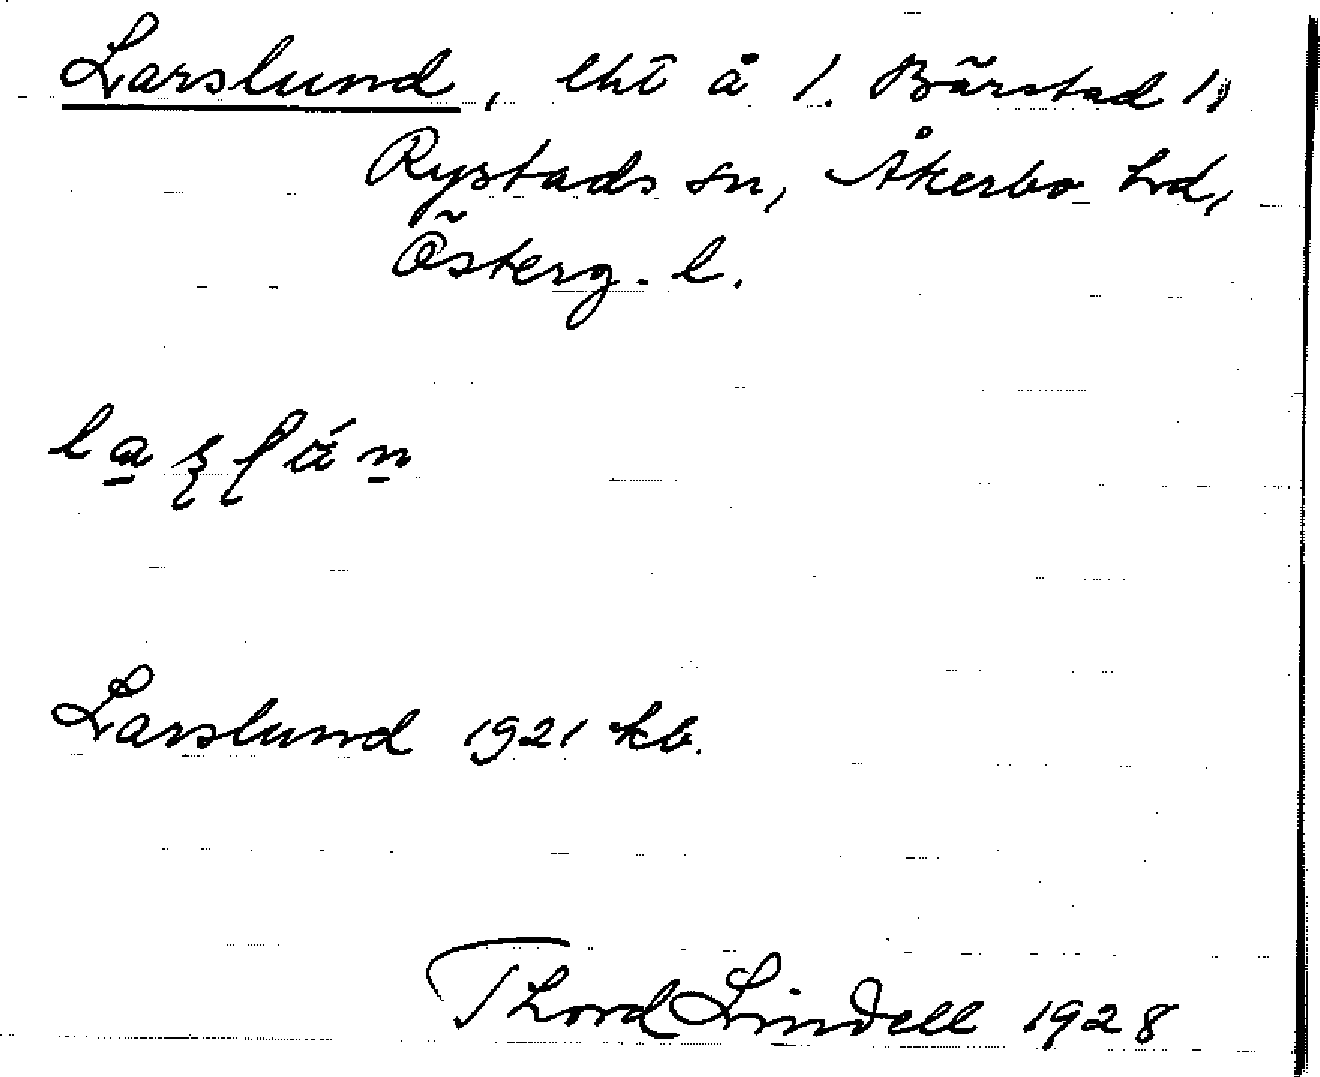 Larslund, lht å 1. Bärstad 1,
Rystads sn, Åkerbo hd,
Österg. l.
Larslund 1921 kb.
Thord Lindell 1928